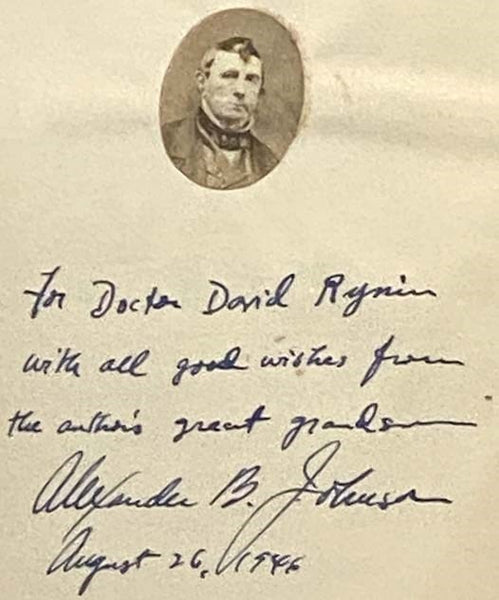 For Doctor David Rynin
with all good wishes from
the author's great grandson
Alexander B. Johnson
August 26, 1946